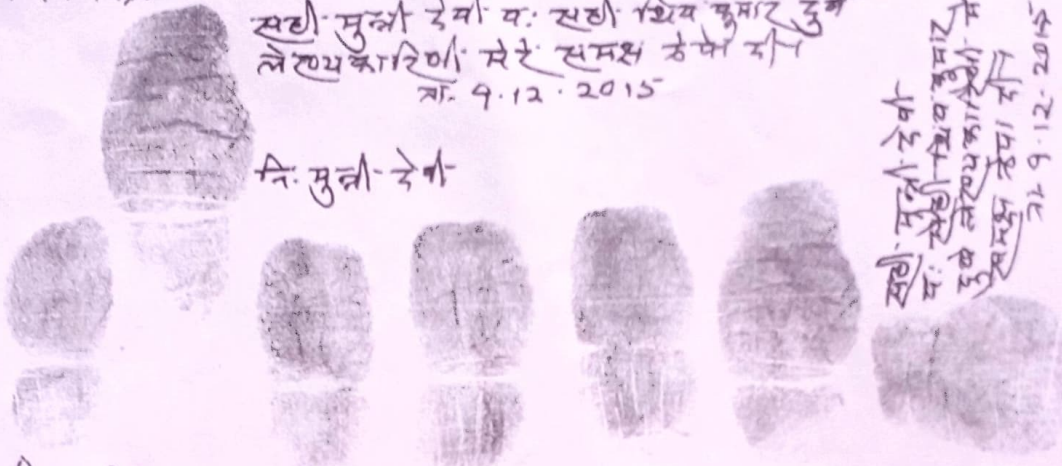 सही मुन्नी देवी व: सही शिव कुमार दुबे
लेख्यकारिणी मेरे समक्ष ठेपी दी।
ता. 9.12.2015
नि: मुन्नी देवी
सही मुन्नी देवी
व: सही शिव कुमार
दुबे लेख्यकारिणी मेरे
समक्ष ठेपी दी।
ता 9.12.2015